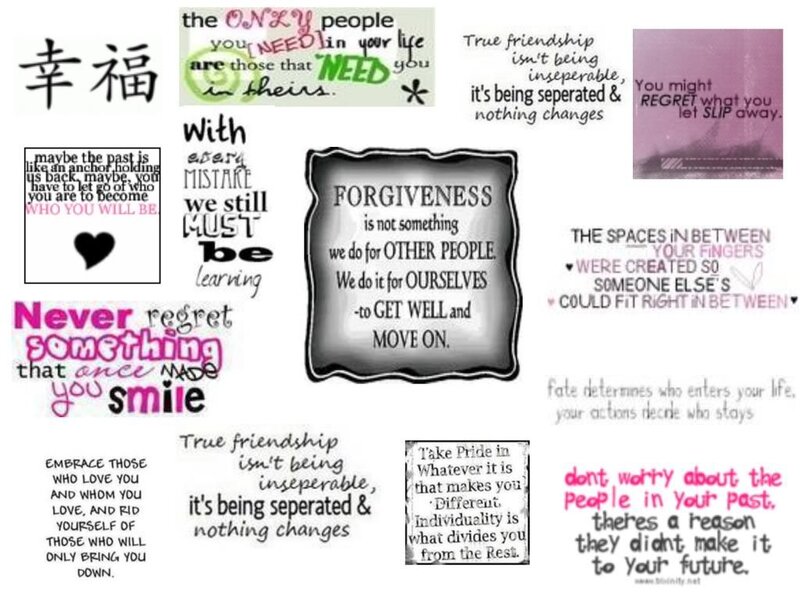 幸福
the ONLY people
you [NEED] in your life
are those that NEED you
in theirs.
*
True friendship
isn't being
inseperable,
it's being seperated &
nothing changes
You might
REGRET what you
let SLIP away.
maybe the past is
like an anchor holding
us back, maybe, you
have to let go of who
you are to become
WHO YOU WILL BE.
With
every
MISTAKE
we still
MUST
be
learning
FORGIVENESS
is not something
we do for OTHER PEOPLE.
We do it for OURSELVES
-to GET WELL and
MOVE ON.
THE SPACES iN BETWEEN
YOUR FiNGERS
♥ WERE CREATED SO
SOMEONE ELSE'S
♥ COULD FiT RiGHT iN BETWEEN ♥
Never regret
something
that once MADE
you smile
fate determines who enters your life,
your actions decide who stays
EMBRACE THOSE
WHO LOVE YOU
AND WHOM YOU
LOVE, AND RID
YOURSELF OF
THOSE WHO WILL
ONLY BRING YOU
DOWN.
True friendship
isn't being
inseperable,
it's being seperated &
nothing changes
Take Pride in
Whatever it is
that makes you
Different,
Individuality is
what divides you
from the Rest.
dont worry about the
people in your past,
theres a reason
they didnt make it
to your future.